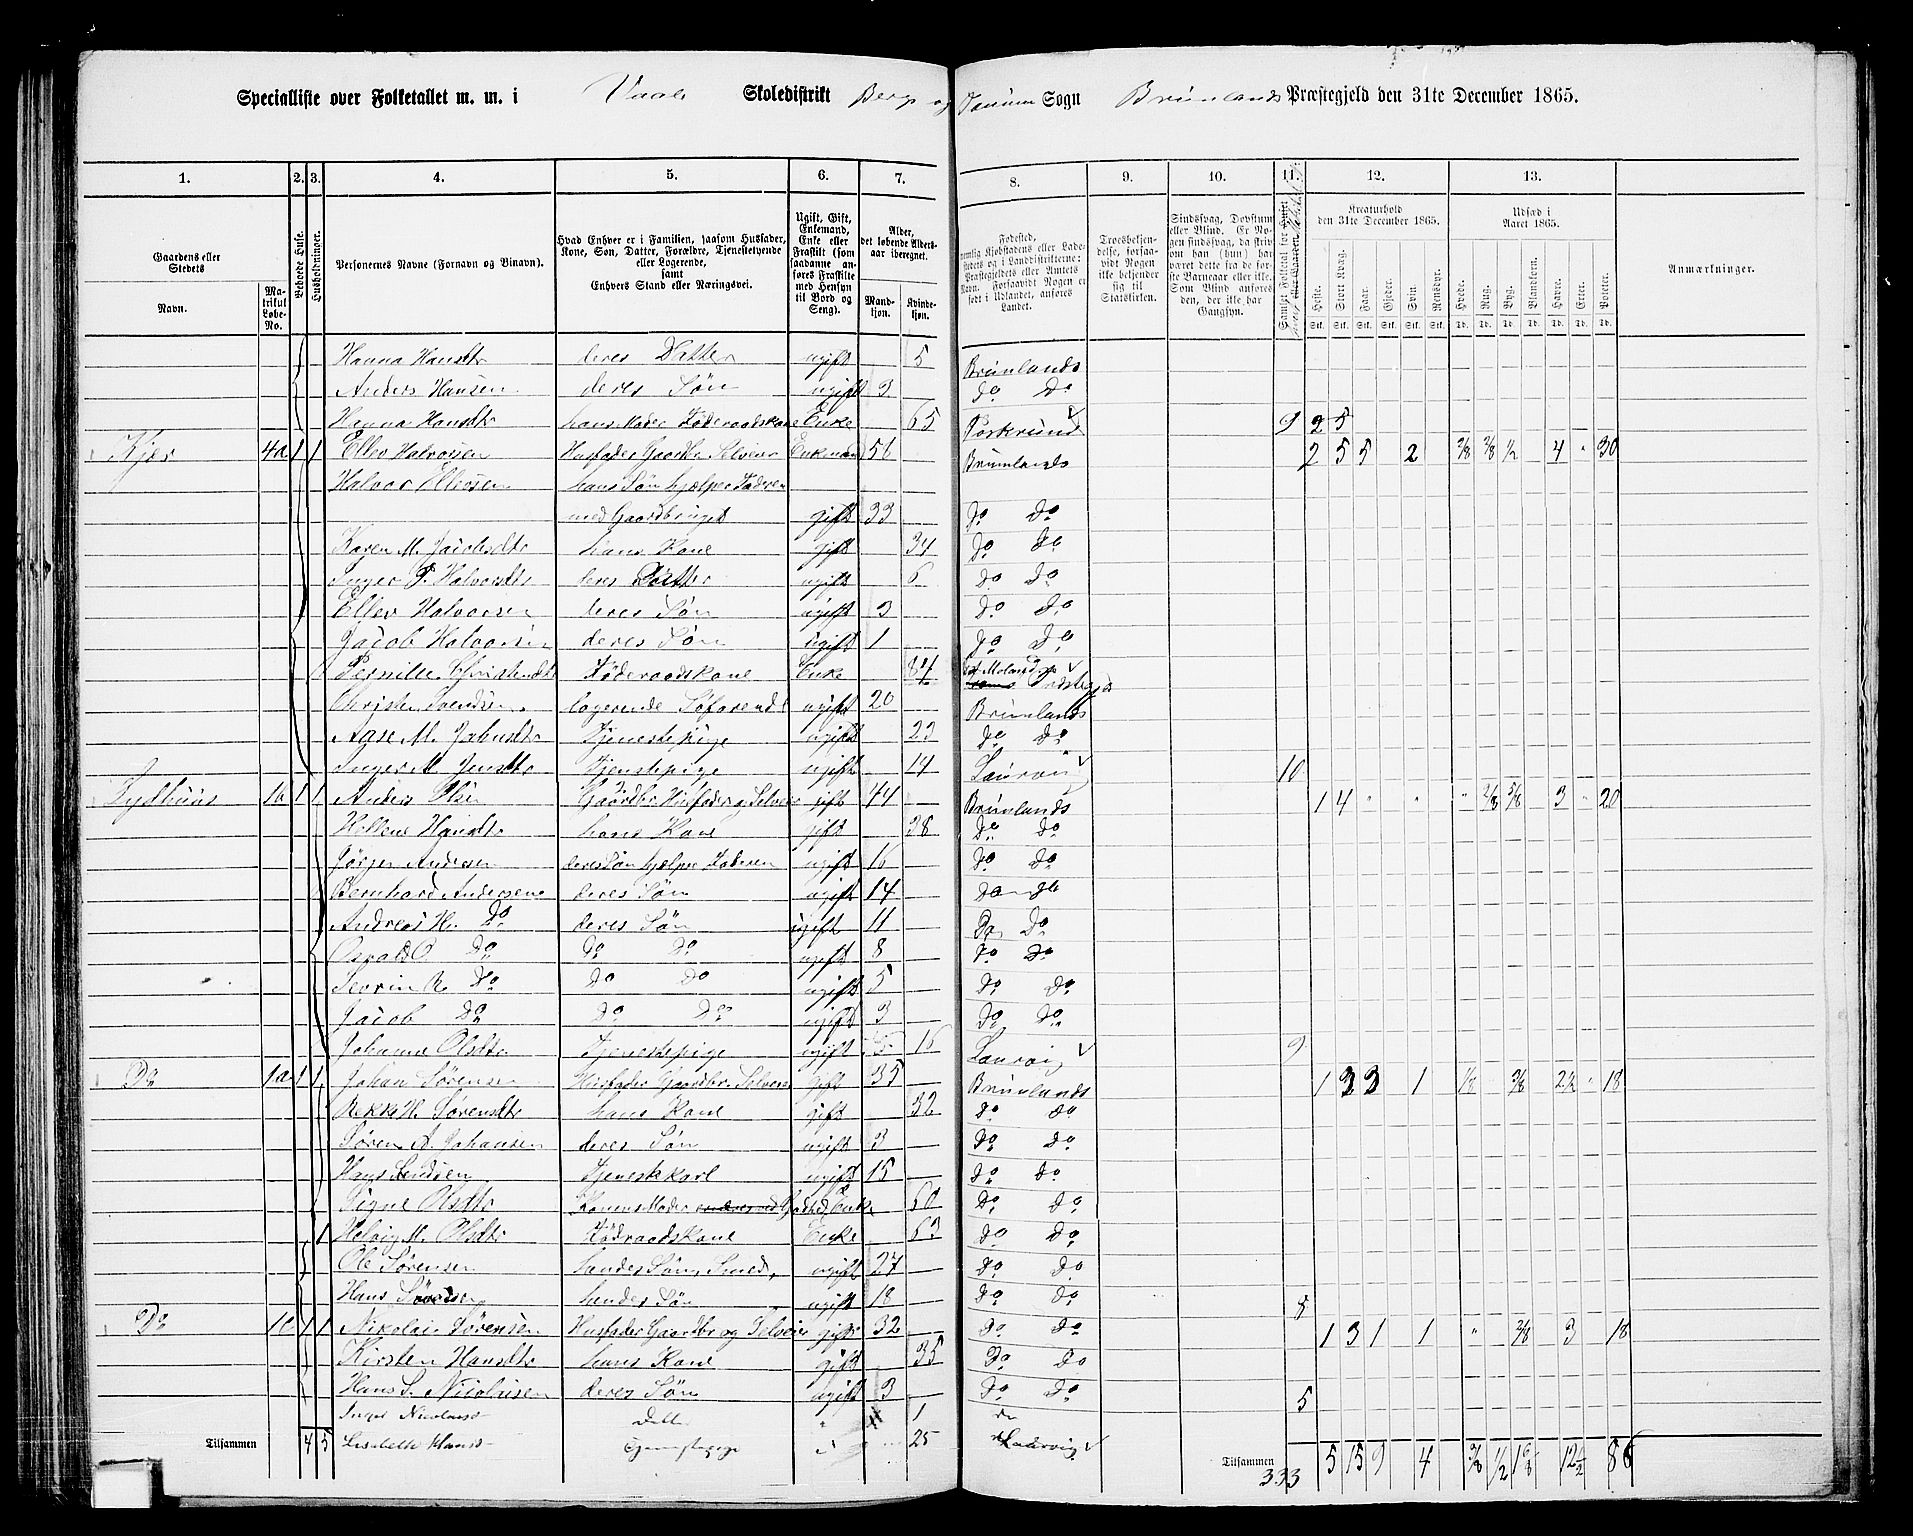 Specialliste over Folketallet m. m. i Vaale Skoledistrikt Berg og Tanum Sogn Brunlands Præstegjeld den 31te December 1865.
1. 2. 3. 4. 5. 6. 7. 8. 9. 10. 11. 12. 13.
Gaardens eller Stedets
Navn. Matrikul Løbe-No.
Beboede Huse.
Husholdninger.
Personernes Navne (Fornavn og Tilnavn).
Hvad Enhver er i Familien, saasom Husfader, Kone, Søn, Datter, Forældre, Tjenestetyende eller Logerende, samt Enhvers Stand eller Næringsvei.
Ugift, Gift, Enkemand, Enke eller Fraskilt (som saadanne anføres Fraskilte med Hensyn til Bord og Seng).
Alder, det løbende Aldersaar iberegnet.
Mandkjøn. Kvindekjøn.
Troesbekjendelse, forsaavidt Nogen ikke bekjender sig til Statskirken.
Sindssvag, Døvstum eller Blind.
Kreaturhold den 31te December 1865.
Heste. Stort Kvæg. Faar. Gjeder. Svin. Rensdyr.
Udsæd i Aaret 1865.
Hvede. Rug. Byg. Blandkorn. Havre. Erter. Poteter.
Anmærkninger.
Hanna Hansdtr deres Datter ugift 5 Brunlands
Anders Hansen deres Søn ugift 3 Do Do
Hanna Hansdtr hans Moder Föderaadskone Enke 65 Porsgrund 9 2 5
Kjær 4a 1 1 Ellev Halvorsen Husfader Gaardbr Selveier Enkemand 56 Brunlands 2 5 5 2 2/8 2/8 1/2 4 " 30
Halvor Ellevsen hans Søn hjælper Faderen
med Gaardbruget gift 33 Do Do
Karen M. Jacobsdtr hans Kone gift 34 Do Do
Inger P. Halvorsdtr deres Datter ugift 6 Do Do
Ellev Halvorsen deres Søn ugift 3 Do Do
Jacob Halvorsen deres Søn ugift 1 Do Do
Pernille Christensdtr Föderaadskone Enke 84
Christen Svendsen logerende Söfarende ugift 20 Brunlands
Aase M. Jahnsdtr Tjenestepige ugift 23 Do Do
Inger M. Jensdtr Tjenstepige ugift 14 Laurvig 10
1b 1 1 Anders Olsen Gaardbr Husfader og Selveier gift 44 Brunlands 1 4 " " " 2/8 5/8 3 " 20
Hellene Hansdtr hans Kone gift 38 Do Do
Jörgen Andersen deres Søn hjælper Faderen ugift 16 Do Do
Bernhard Andersen deres Søn ugift 14 Do Do
Andreas H. Do deres Søn ugift 11 Do Do
Osvald O. Do Do Do ugift 8 Do Do
Sevrin R. Do Do Do ugift 5 Do Do
Jacob Do Do Do ugift 3 Do Do
Johanne Olsdtr Tjenestepige ugift 16 Laurvig 9
Do 1a 1 1 Johan Sørensen Husfader Gaardbr. Selveier gift 35 Brunlands 1 3 3 1 1/8 3/8 2 1/2 " 18
Rekke H. Sørensdtr hans Kone gift 32 Do Do
Søren A. Johansen deres Søn ugift 3 Do Do
Hans Tjenestekarl ugift 15 Do Do
Signe Olsdtr Konens Moder Enke 60 Do Do
1 Helvig M. Olsdtr Födraadskone Enke 63 Do Do
Ole Sørensen hendes Søn, Smed, ugift 27 Do Do
Hans Sørensen hendes Søn ugift 18 Do Do 8
Do 1c 1 1 Nikolai Sørensen Husfader Gaardbr og Selveier gift 32 Do Do 1 3 1 1 " 3/8 3 18
Kirsten Hansdtr hans Kone gift 35 Do Do
Hans S. Nicolaisen deres Søn ugift 3 Do Do 5
Inger Nicolaisd Datter " 1 Do
Tilsammen 4 5 Lisabeth Hansd Tjenestepige " 25 Laurvig
Tilsammen 333 5 15 9 4 3/8 1 1/2 1 6/8 12 1/2 86